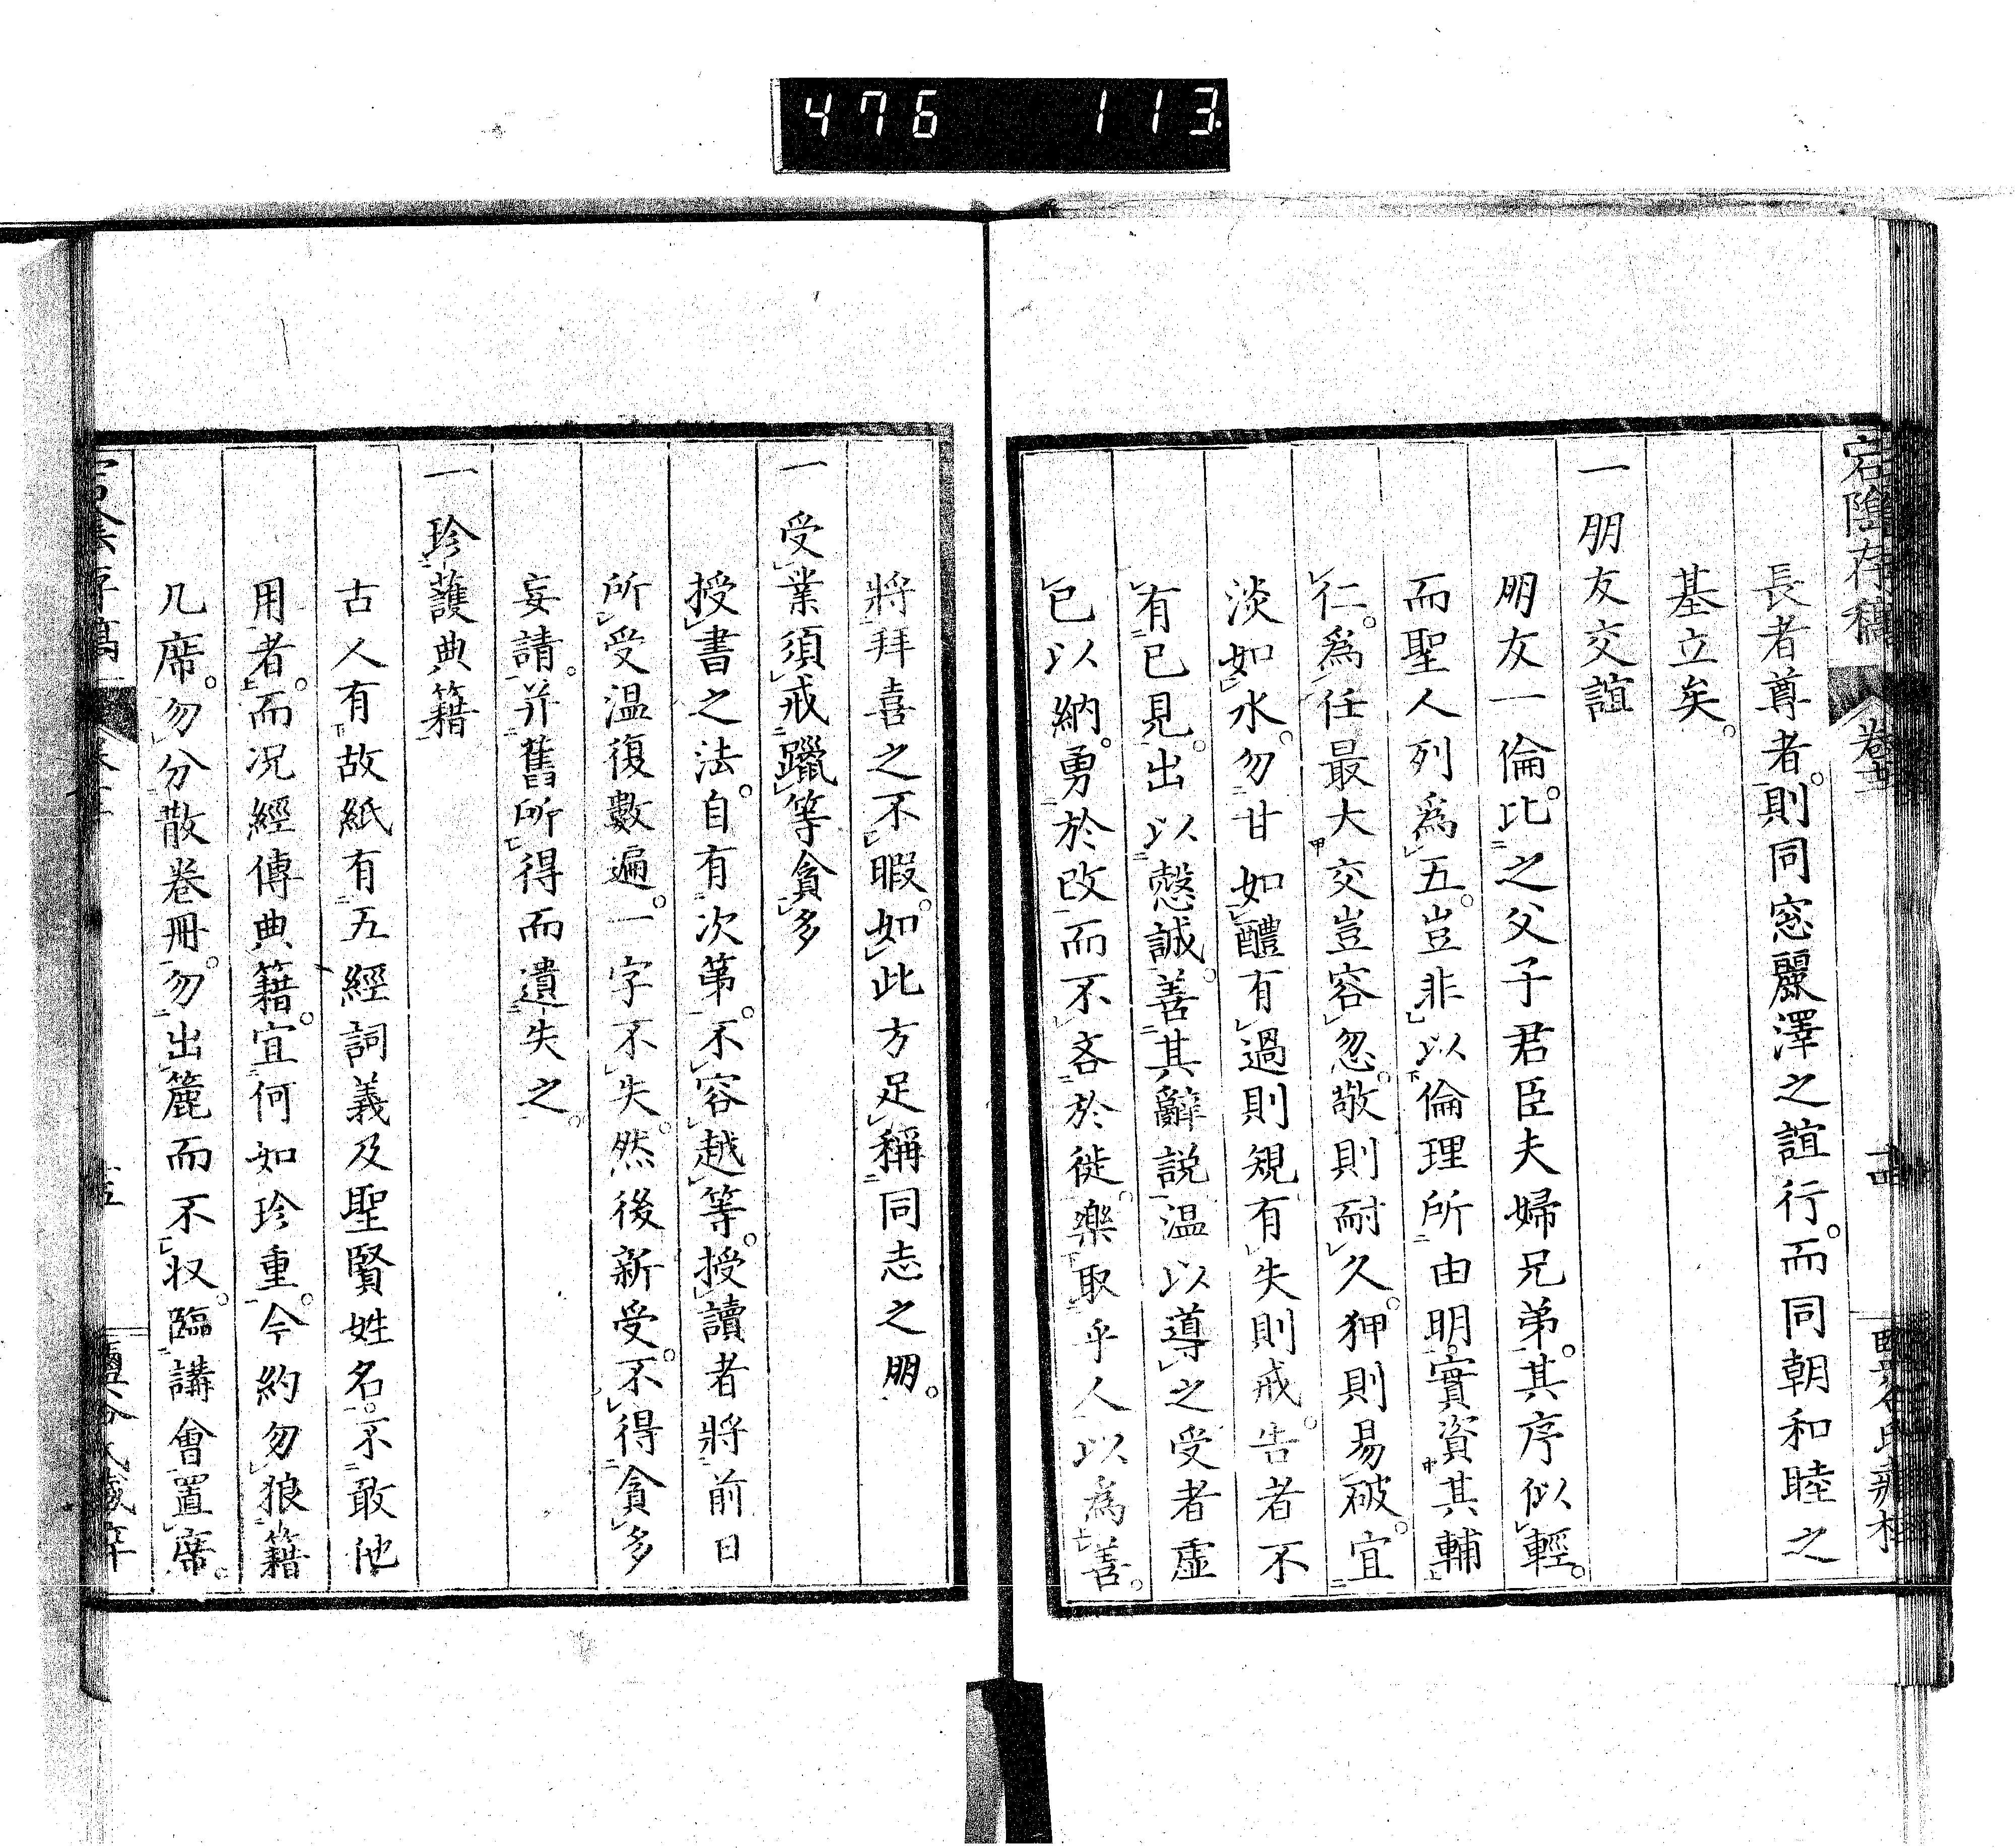 476 113
宕陰存稿
卷十二
十四
長者尊者。則同窓麗澤之誼行。而同朝和睦之
基立矣。
一朋友交誼
朋友一倫。比之父子君臣夫婦兄弟。其序似輕。
而聖人列爲五。豈非以倫理所由明。實資其輔
仁。爲任最大交豈容忽。敬則耐久。狎則易破。宜
淡如水。勿甘如醴有過則規有失則戒。告者不
有已見。出以愨誠。善其辭説温以導之受者虛
已以納。勇於改而不吝於徙。樂取乎人以為善。
將拜喜之不暇。如此方足稱同志之朋。
一受業須戒躐等貪多
授書之法。自有次第。不容越等。授讀者將前日
所受温復數遍。一字不失。然後新受。不得貪多
妄請。并舊所得而遺失之。
一珍護典籍
古人有故紙有五經詞義及聖賢姓名。不敢他
用者。而况經傳典籍。宜何如珍重。今約勿狼籍
几席。勿分散卷冊。勿出簏而不収。臨講會置席。